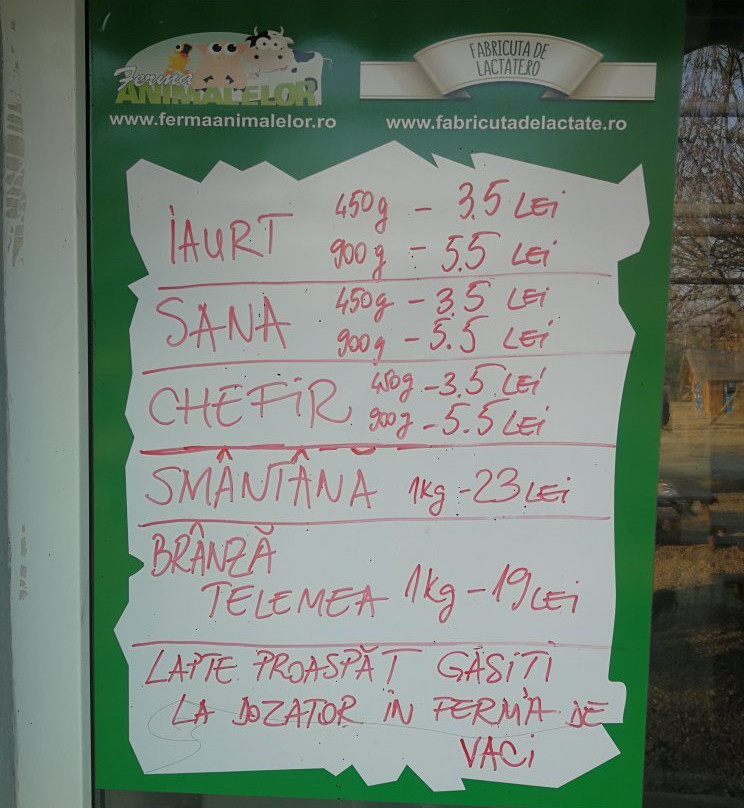 Ferma
ANIMALELOR
www.fermaanimalelor.ro
FABRICUTA DE
LACTATE.RO
www.fabricutadelactate.ro
IAURT 450g - 3.5 LEI
900g - 5.5 LEI
SANA 450g - 3.5 LEI
900g - 5.5 LEI
CHEFIR 450g - 3.5 LEI
900g - 5.5 LEI
SMÂNTÂNA 1kg - 23 LEI
BRÂNZĂ
TELEMEA 1kg - 19 LEI
LAPTE PROASPĂT GĂSITI
LA DOZATOR IN FERMA DE
VACI